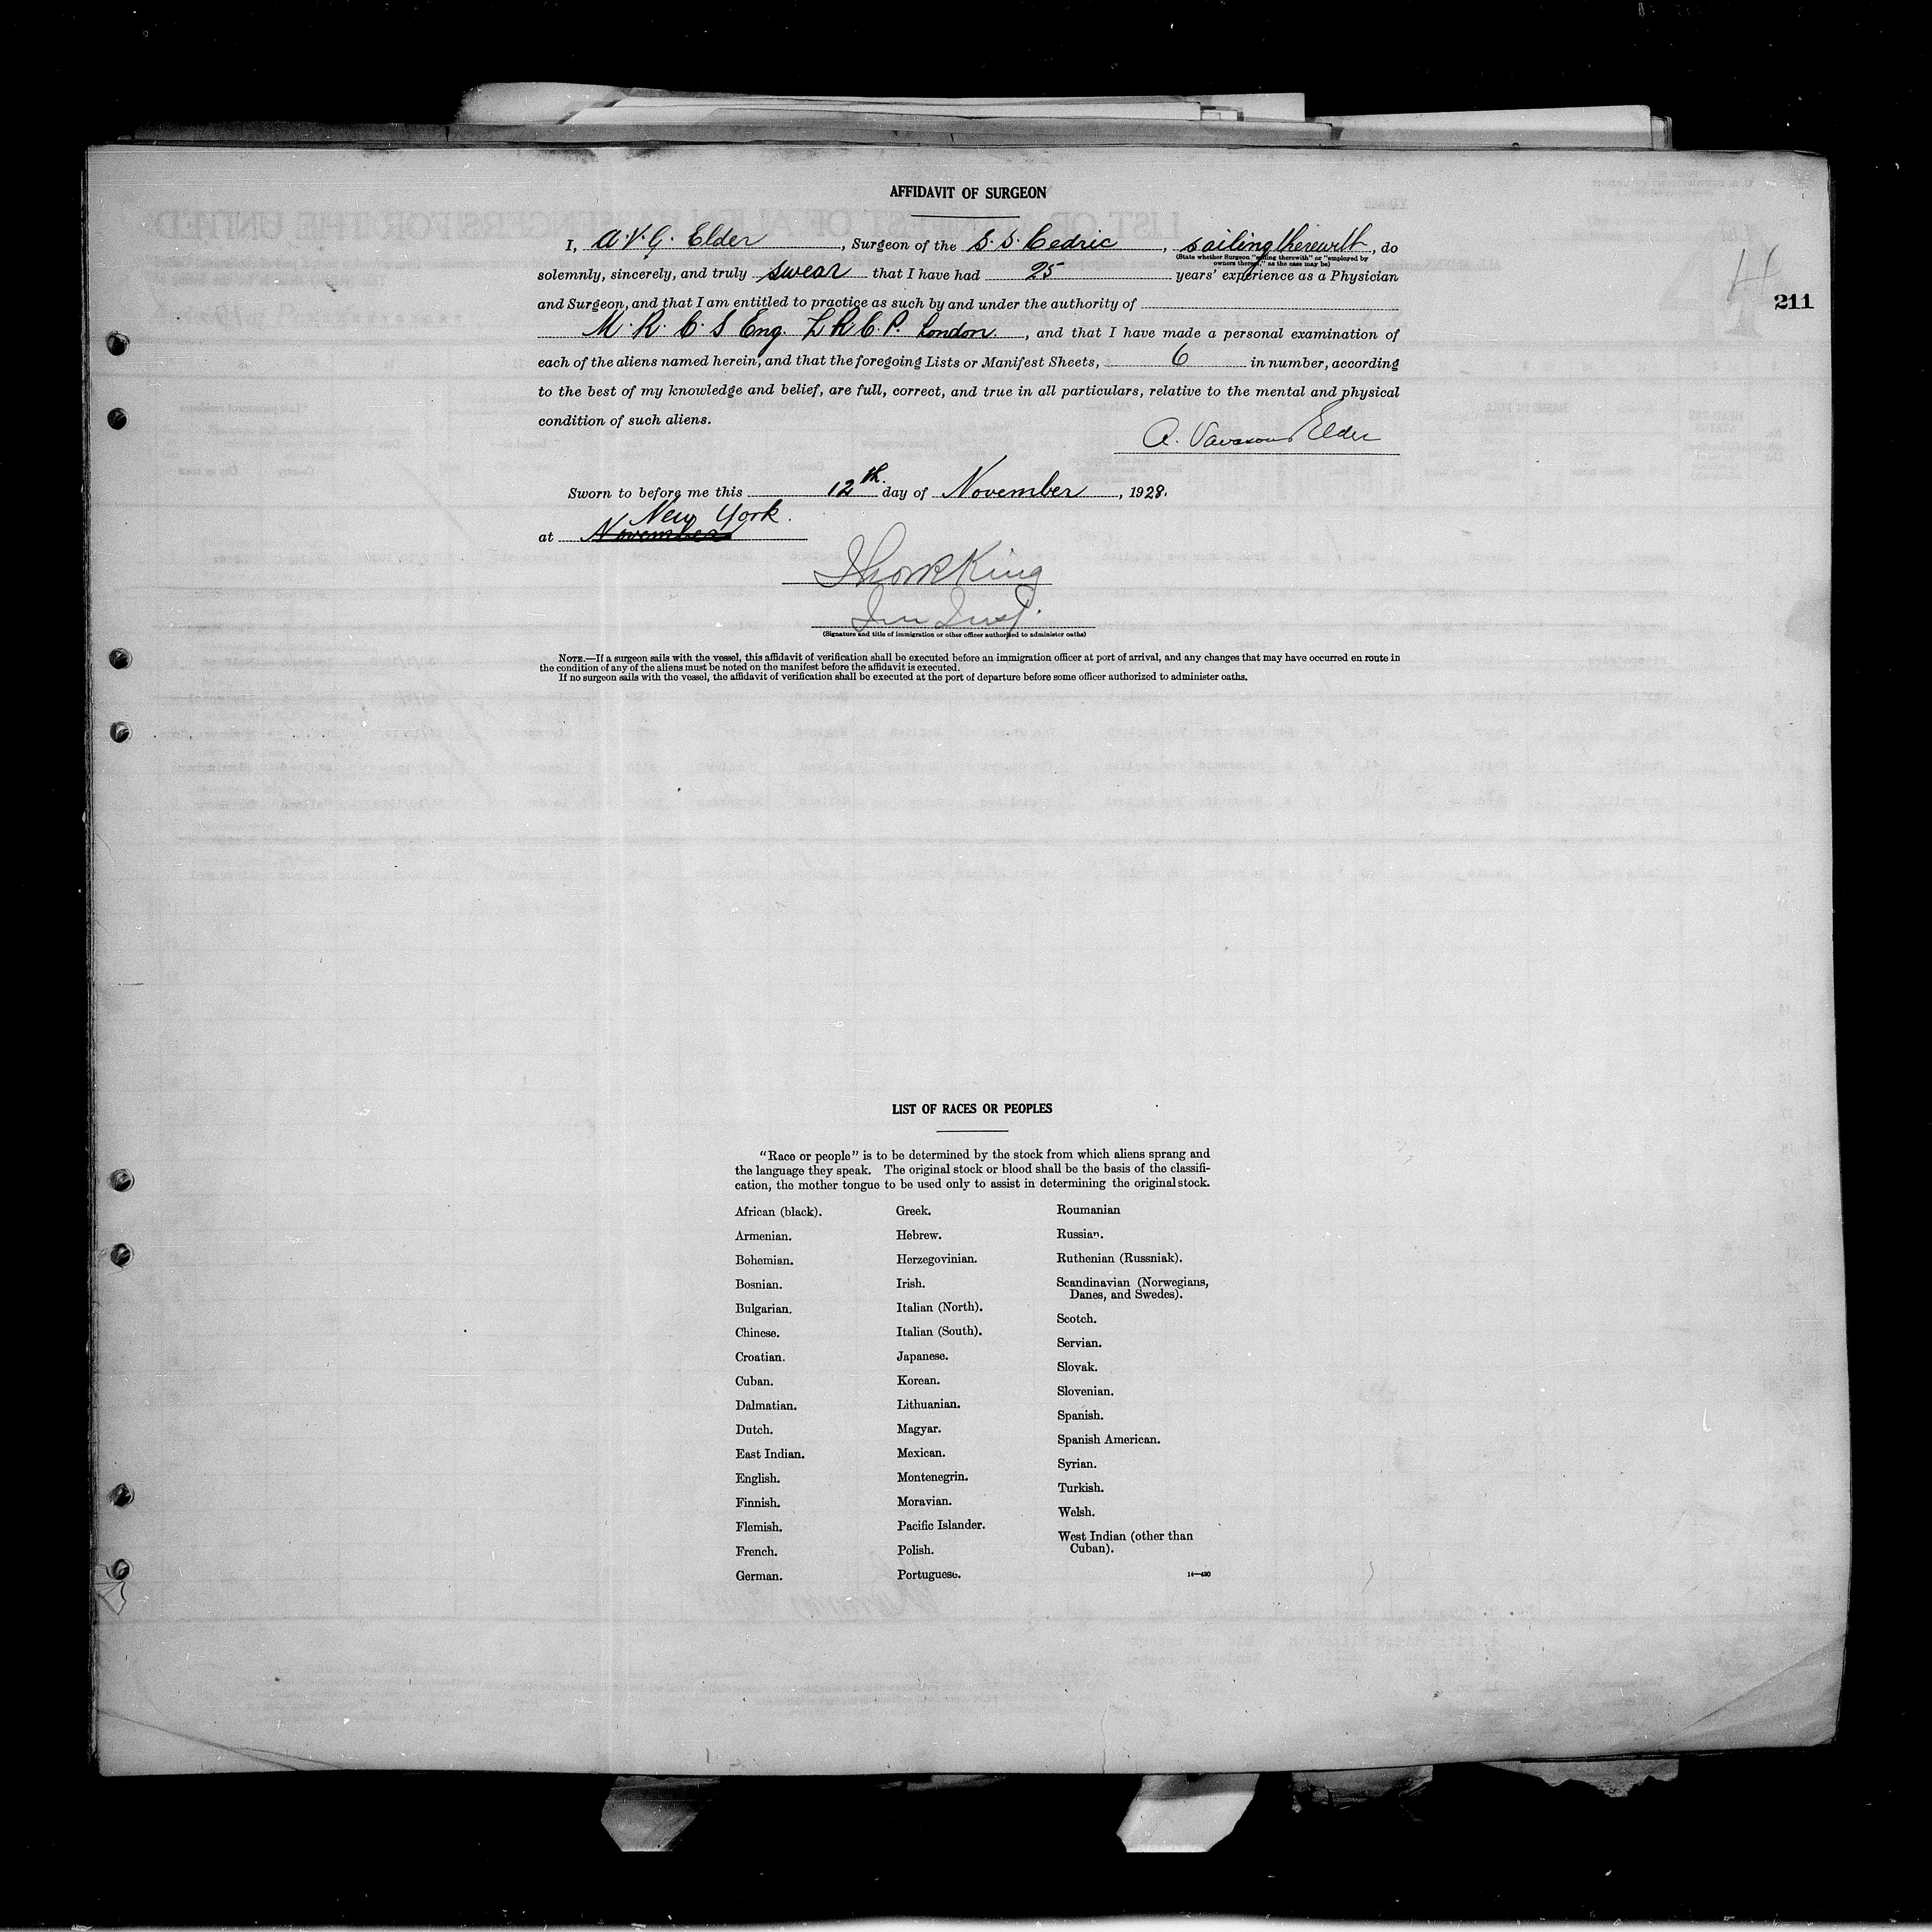 AFFIDAVIT OF SURGEON
I, A. V. G. Elder, Surgeon of the S. S. Cedric, sailing therewith, do
(State whether Surgeon "sailing therewith" or "employed by
owners thereof," as the case may be)
solemnly, sincerely, and truly swear that I have had 25 years' experience as a Physician
and Surgeon, and that I am entitled to practice as such by and under the authority of
M. R. C. S Eng. L R. C. P. London, and that I have made a personal examination of
each of the aliens named herein, and that the foregoing Lists or Manifest Sheets, 6 in number, according
to the best of my knowledge and belief, are full, correct, and true in all particulars, relative to the mental and physical
condition of such aliens.
A. Vavasour Elder
Sworn to before me this 12th. day of November, 1928.
New York.
at November
King
(Signature and title of immigration or other officer authorized to administer oaths)
NOTE.—If a surgeon sails with the vessel, this affidavit of verification shall be executed before an immigration officer at port of arrival, and any changes that may have occurred en route in
the condition of any of the aliens must be noted on the manifest before the affidavit is executed.
If no surgeon sails with the vessel, the affidavit of verification shall be executed at the port of departure before some officer authorized to administer oaths.
4
211
LIST OF RACES OR PEOPLES
"Race or people" is to be determined by the stock from which aliens sprang and
the language they speak. The original stock or blood shall be the basis of the classifi-
cation, the mother tongue to be used only to assist in determining the original stock.
African (black).
Armenian.
Bohemian.
Bosnian.
Bulgarian.
Chinese.
Croatian.
Cuban.
Dalmatian.
Dutch.
East Indian.
English.
Finnish.
Flemish.
French.
German.
Greek.
Hebrew.
Herzegovinian.
Irish.
Italian (North).
Italian (South).
Japanese.
Korean.
Lithuanian.
Magyar.
Mexican.
Montenegrin.
Moravian.
Pacific Islander.
Polish.
Portuguese.
Roumanian
Russian.
Ruthenian (Russniak).
Scandinavian (Norwegians,
Danes, and Swedes).
Scotch.
Servian.
Slovak.
Slovenian.
Spanish.
Spanish American.
Syrian.
Turkish.
Welsh.
West Indian (other than
Cuban).
14—430